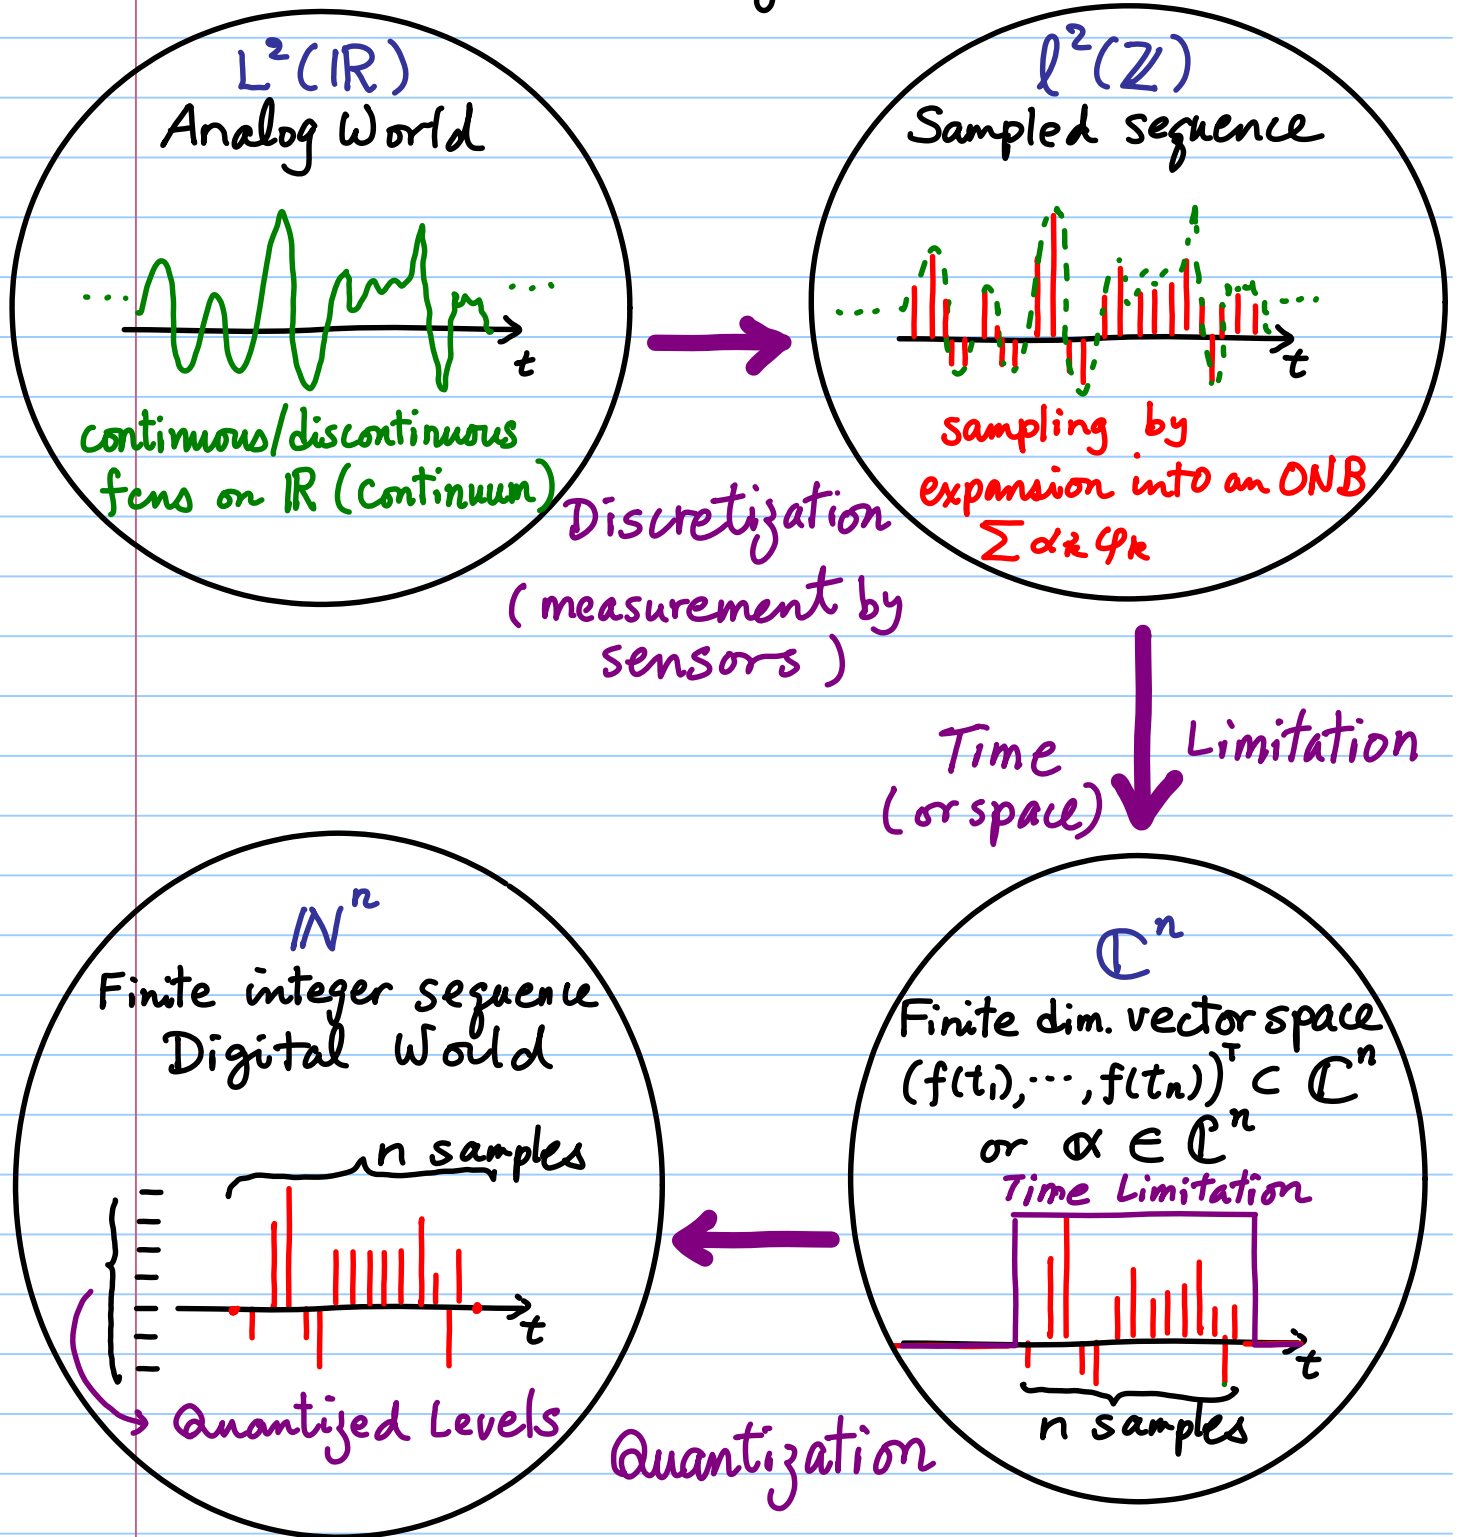 L²(ℝ)
Analog World
t
continuous/discontinuous
fcns on ℝ (continuum)
ℓ²(ℤ)
Sampled sequence
t
sampling by
expansion into an ONB
Σ αₖ φₖ
Discretization
(measurement by
sensors)
Time
(or space)
Limitation
ℂⁿ
Finite dim. vector space
(f(t₁), ⋯, f(tₙ))ᵀ ⊂ ℂⁿ
or α ∈ ℂⁿ
Time Limitation
t
n samples
Quantization
ℕⁿ
Finite integer sequence
Digital World
n samples
t
Quantized Levels